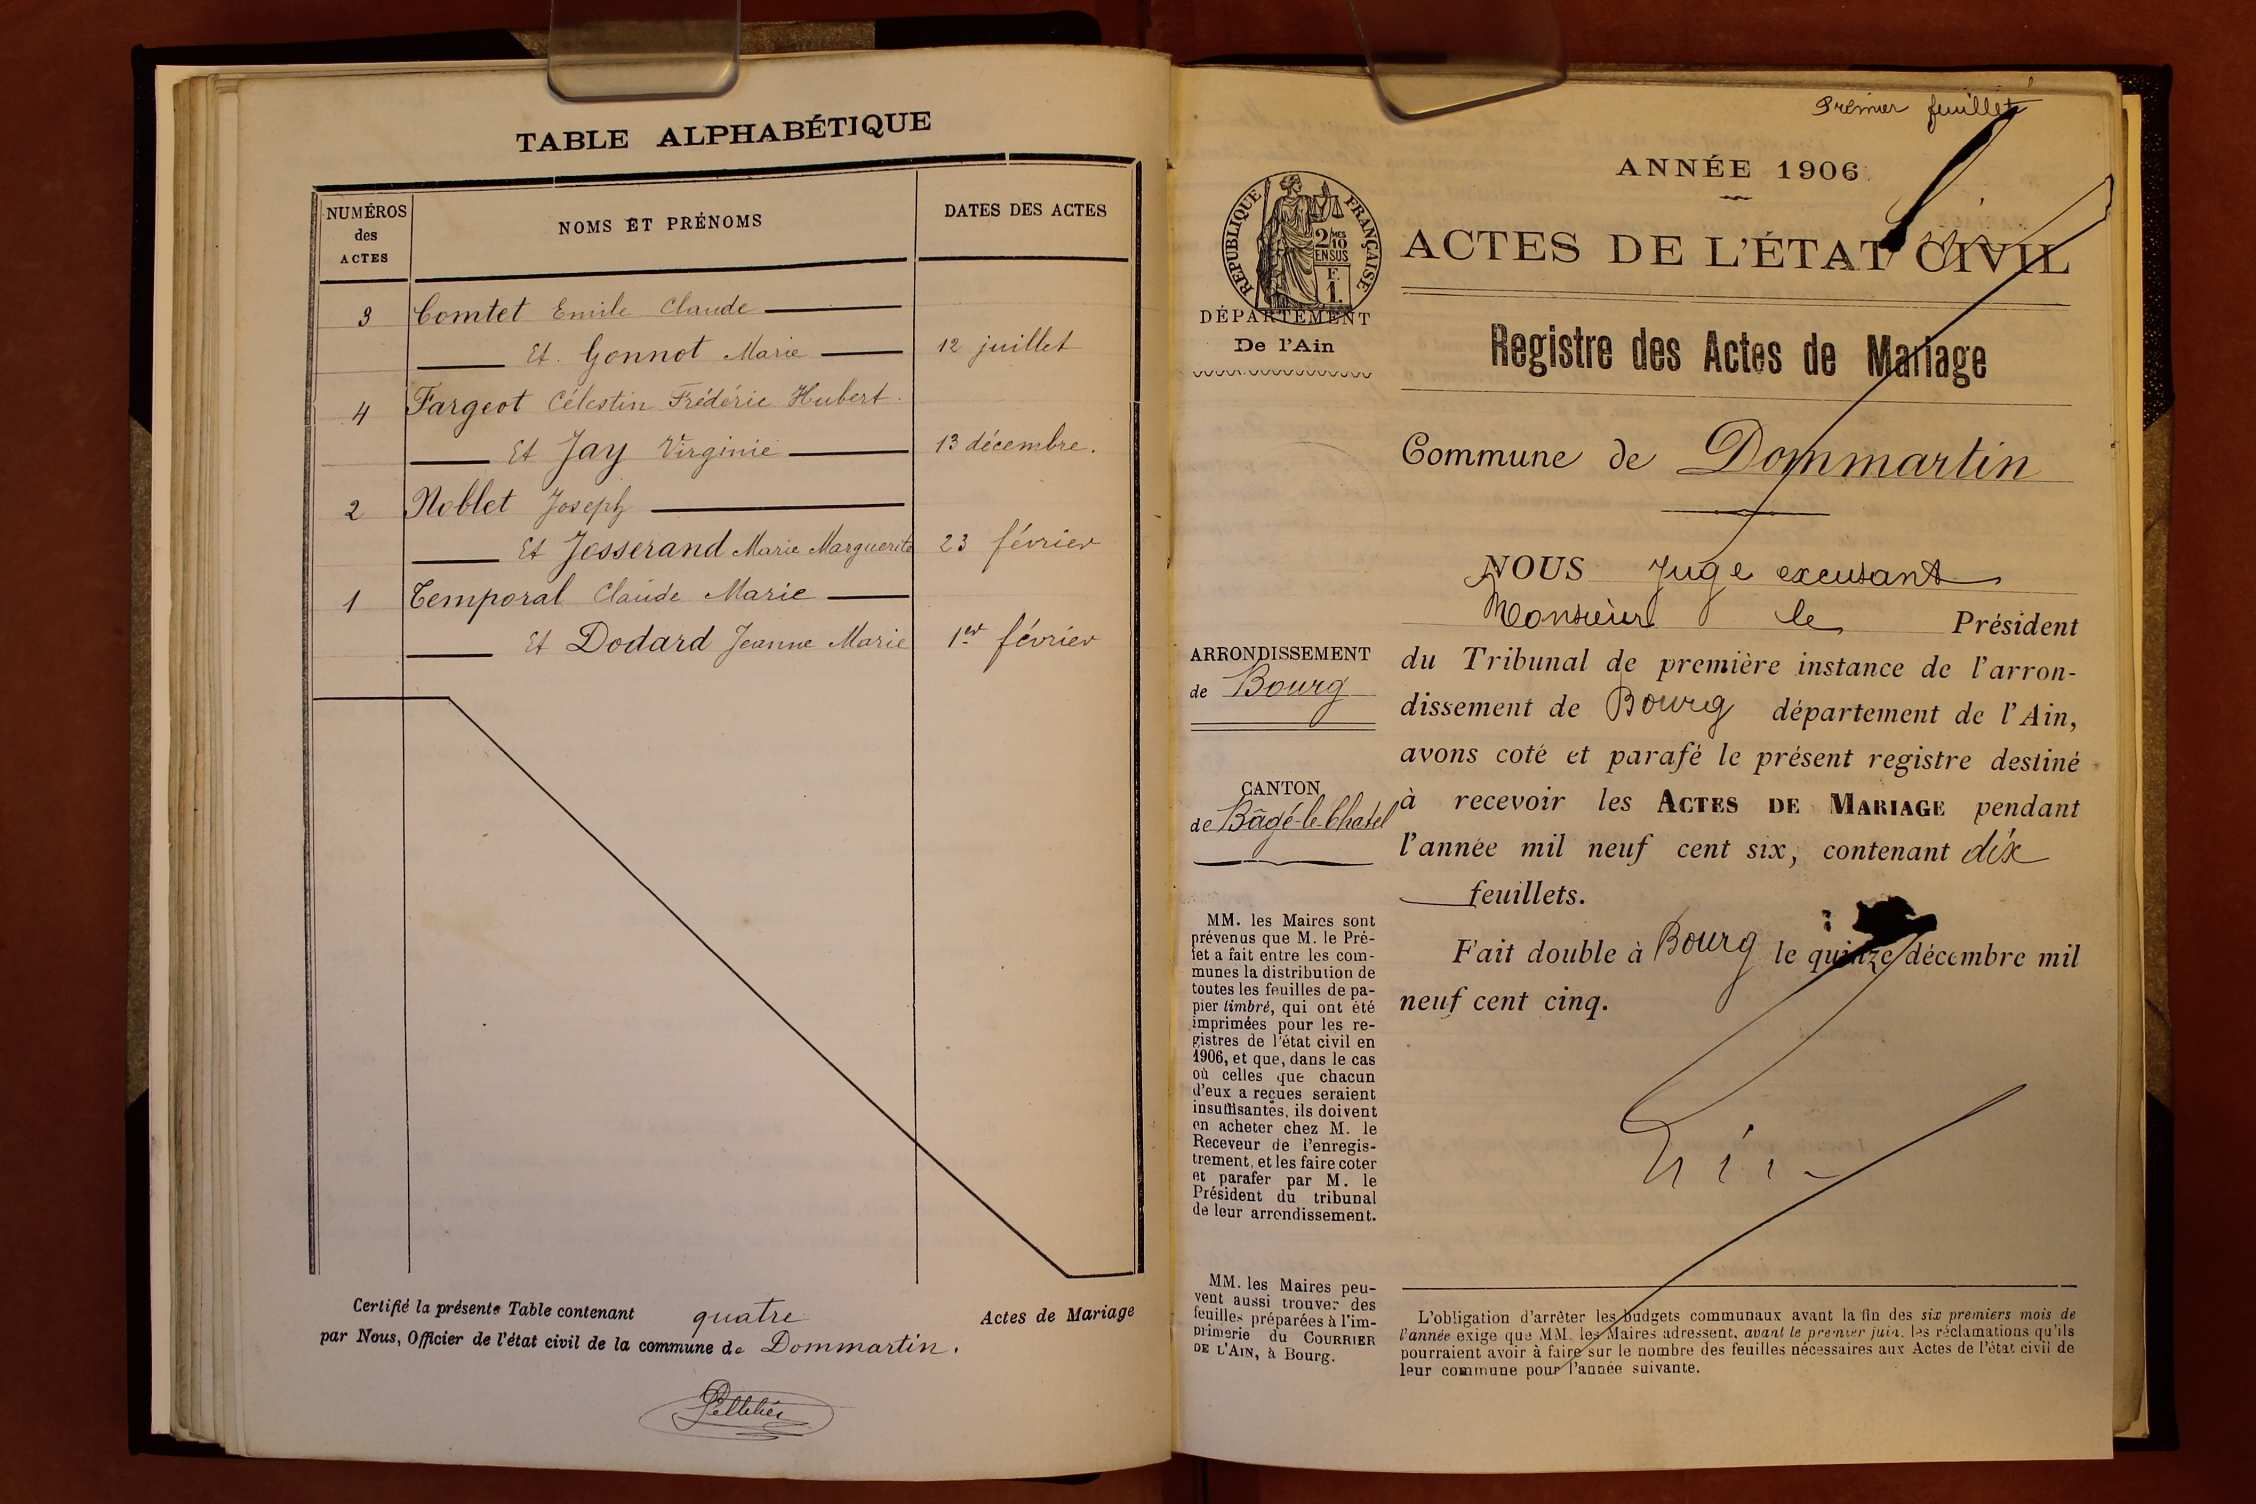 TABLE ALPHABÉTIQUE
NUMÉROS
des
ACTES
NOMS ET PRÉNOMS
DATES DES ACTES
3 Comtet Emile Claude
Et Gonnot Marie 12 juillet
4 Fargeot Célestin Frédéric Hubert
Et Jay Virginie 13 décembre.
2 Noblet Joseph
Et Josserand Marie Marguerite 23 février
1 Temporal Claude Marie
Et Dodard Jeanne Marie 1er février
Certifié la présente Table contenant quatre Actes de Mariage
par Nous, Officier de l'état civil de la commune de Dommartin.
Pelletier
Premier feuillet
ANNÉE 1906
RÉPUBLIQUE FRANÇAISE
2/10
MES
EN SUS
F.
1.
ACTES DE L'ÉTAT CIVIL
DÉPARTEMENT
De l'Ain
Registre des Actes de Mariage
Commune de Dommartin
NOUS Juge excusant
Monsieur le Président
du Tribunal de première instance de l'arron-
dissement de Bourg département de l'Ain,
avons coté et parafé le présent registre destiné
à recevoir les ACTES DE MARIAGE pendant
l'année mil neuf cent six, contenant dix
feuillets.
Fait double à Bourg le quinze décembre mil
neuf cent cinq.
ARRONDISSEMENT
de Bourg
CANTON
de Bâgé-le-Chatel
MM. les Maires sont
prévenus que M. le Pré-
fet a fait entre les com-
munes la distribution de
toutes les feuilles de pa-
pier timbré, qui ont été
imprimées pour les re-
gistres de l'état civil en
1906, et que, dans le cas
où celles que chacun
d'eux a reçues seraient
insuffisantes, ils doivent
en acheter chez M. le
Receveur de l'enregis-
trement, et les faire coter
et parafer par M. le
Président du tribunal
de leur arrondissement.
MM. les Maires peu-
vent aussi trouver des
feuilles préparées à l'im-
primerie du COURRIER
DE L'AIN, à Bourg.
L'obligation d'arrêter les budgets communaux avant la fin des six premiers mois de
l'année exige que MM. les Maires adressent, avant le premier juin, les réclamations qu'ils
pourraient avoir à faire sur le nombre des feuilles nécessaires aux Actes de l'état civil de
leur commune pour l'année suivante.